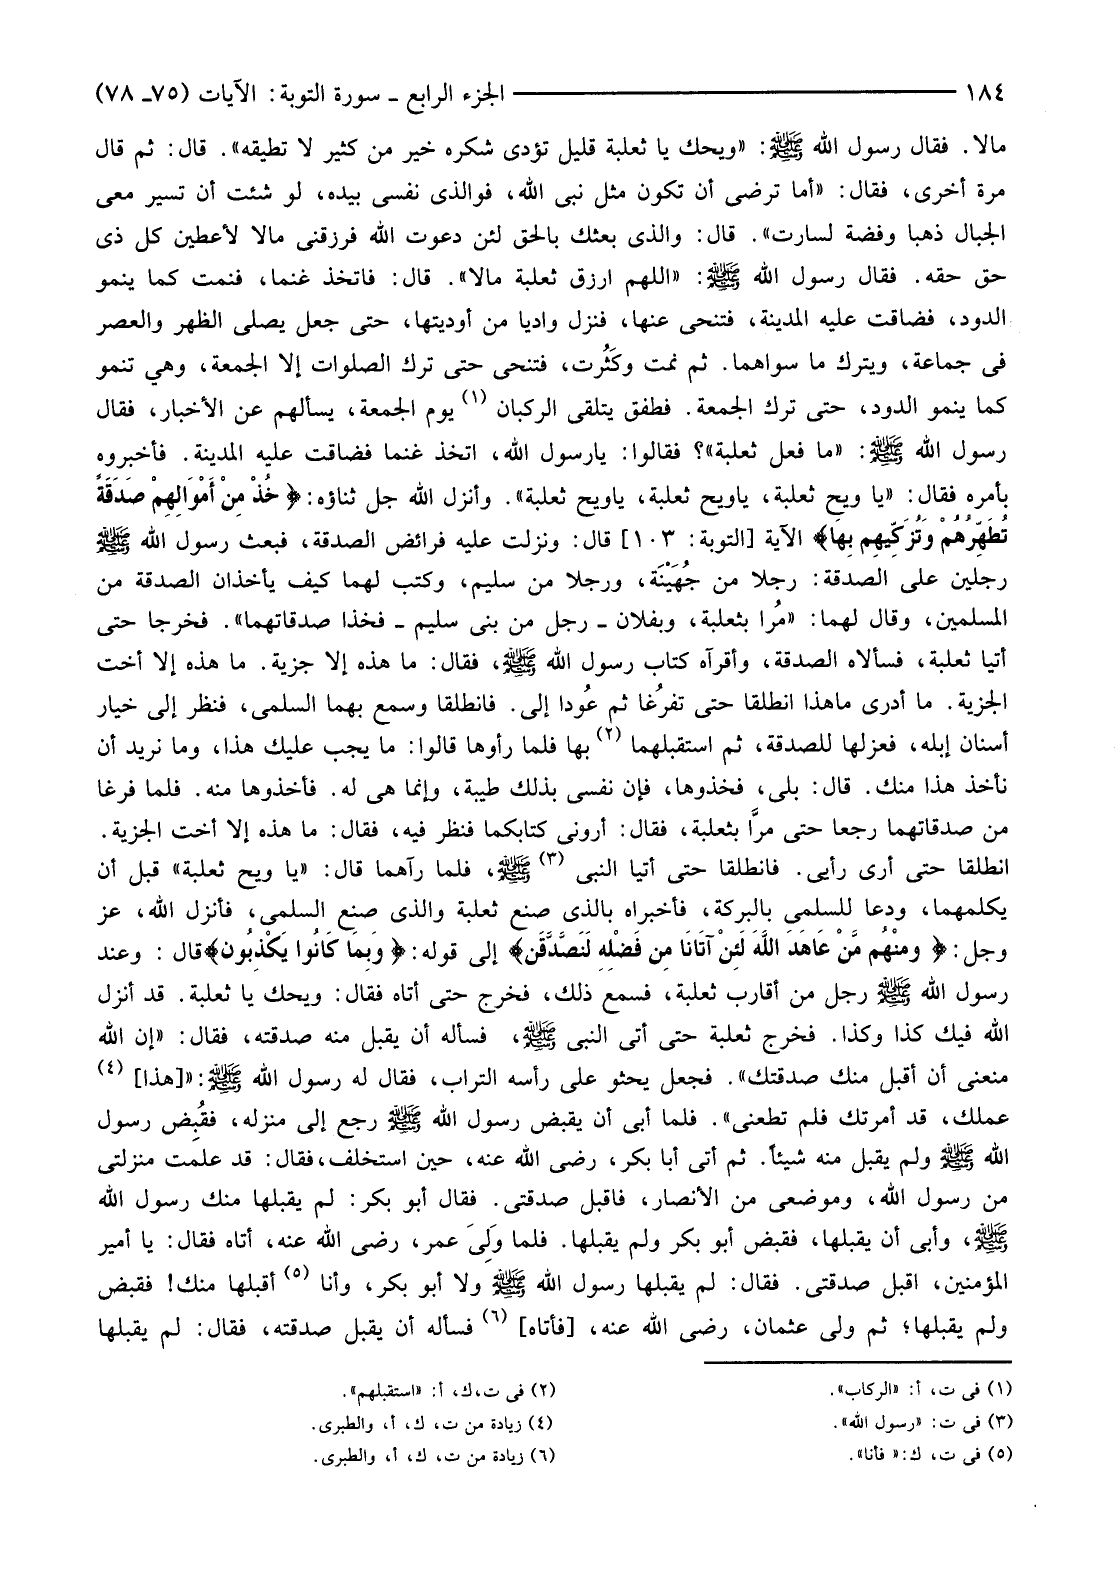 ١٨٤ ــــــــ الجزء الرابع ـ سورة التوبة: الآيات (٧٥ـ ٧٨)
مالا. فقال رسول الله ﷺ: «ويحك يا ثعلبة قليل تؤدى شكره خير من كثير لا تطيقه». قال: ثم قال
مرة أخرى، فقال: «أما ترضى أن تكون مثل نبى الله، فوالذى نفسى بيده، لو شئت أن تسير معى
الجبال ذهبا وفضة لسارت». قال: والذى بعثك بالحق لئن دعوت الله فرزقنى مالا لأعطين كل ذى
حق حقه. فقال رسول الله ﷺ: «اللهم ارزق ثعلبة مالا». قال: فاتخذ غنما، فنمت كما ينمو
الدود، فضاقت عليه المدينة، فتنحى عنها، فنزل واديا من أوديتها، حتى جعل يصلى الظهر والعصر
فى جماعة، ويترك ما سواهما. ثم نمت وكَثُرت، فتنحى حتى ترك الصلوات إلا الجمعة، وهي تنمو
كما ينمو الدود، حتى ترك الجمعة. فطفق يتلقى الركبان (١) يوم الجمعة، يسألهم عن الأخبار، فقال
رسول الله ﷺ: «ما فعل ثعلبة»؟ فقالوا: يارسول الله، اتخذ غنما فضاقت عليه المدينة. فأخبروه
بأمره فقال: «يا ويح ثعلبة، ياويح ثعلبة، ياويح ثعلبة». وأنزل الله جل ثناؤه: ﴿ خُذْ مِنْ أَمْوَالِهِمْ صَدَقَةً
تُطَهِّرُهُمْ وَتُزَكِّيهِم بِهَا﴾ الآية [التوبة: ١٠٣] قال: ونزلت عليه فرائض الصدقة، فبعث رسول الله ﷺ
رجلين على الصدقة: رجلا من جُهَيْنَة، ورجلا من سليم، وكتب لهما كيف يأخذان الصدقة من
المسلمين، وقال لهما: «مُرا بثعلبة، وبفلان ـ رجل من بنى سليم ـ فخذا صدقاتهما». فخرجا حتى
أتيا ثعلبة، فسألاه الصدقة، وأقرآه كتاب رسول الله ﷺ، فقال: ما هذه إلا جزية. ما هذه إلا أخت
الجزية. ما أدرى ماهذا انطلقا حتى تفرُغا ثم عُودا إلى. فانطلقا وسمع بهما السلمى، فنظر إلى خيار
أسنان إبله، فعزلها للصدقة، ثم استقبلهما (٢) بها فلما رأوها قالوا: ما يجب عليك هذا، وما نريد أن
نأخذ هذا منك. قال: بلى، فخذوها، فإن نفسى بذلك طيبة، وإنما هى له. فأخذوها منه. فلما فرغا
من صدقاتهما رجعا حتى مرَّا بثعلبة، فقال: أرونى كتابكما فنظر فيه، فقال: ما هذه إلا أخت الجزية.
انطلقا حتى أرى رأيى. فانطلقا حتى أتيا النبى (٣) ﷺ، فلما رآهما قال: «يا ويح ثعلبة» قبل أن
يكلمهما، ودعا للسلمى بالبركة، فأخبراه بالذى صنع ثعلبة والذى صنع السلمى، فأنزل الله، عز
وجل: ﴿ وَمِنْهُم مَّنْ عَاهَدَ اللَّهَ لَئِنْ آتَانَا مِن فَضْلِهِ لَنَصَّدَّقَنَّ﴾ إلى قوله: ﴿ وَبِمَا كَانُوا يَكْذِبُون﴾قال : وعند
رسول الله ﷺ رجل من أقارب ثعلبة، فسمع ذلك، فخرج حتى أتاه فقال: ويحك يا ثعلبة. قد أنزل
الله فيك كذا وكذا. فخرج ثعلبة حتى أتى النبى ﷺ، فسأله أن يقبل منه صدقته، فقال: «إن الله
منعنى أن أقبل منك صدقتك». فجعل يحثو على رأسه التراب، فقال له رسول الله ﷺ:«[هذا] (٤)
عملك، قد أمرتك فلم تطعنى». فلما أبى أن يقبض رسول الله ﷺ رجع إلى منزله، فقُبِض رسول
الله ﷺ ولم يقبل منه شيئاً. ثم أتى أبا بكر، رضى الله عنه، حين استخلف،فقال: قد علمت منزلتى
من رسول الله، وموضعى من الأنصار، فاقبل صدقتى. فقال أبو بكر: لم يقبلها منك رسول الله
ﷺ، وأبى أن يقبلها، فقبض أبو بكر ولم يقبلها. فلما وَلِىَ عمر، رضى الله عنه، أتاه فقال: يا أمير
المؤمنين، اقبل صدقتى. فقال: لم يقبلها رسول الله ﷺ ولا أبو بكر، وأنا (٥) أقبلها منك! فقبض
ولم يقبلها؛ ثم ولى عثمان، رضى الله عنه، [فأتاه] (٦) فسأله أن يقبل صدقته، فقال: لم يقبلها
(١) فى ت، أ: «الركاب». (٢) فى ت،ك، أ: «استقبلهم».
(٣) فى ت: «رسول الله». (٤) زيادة من ت، ك، أ، والطبرى.
(٥) فى ت، ك:« فأنا». (٦) زيادة من ت، ك، أ، والطبرى.